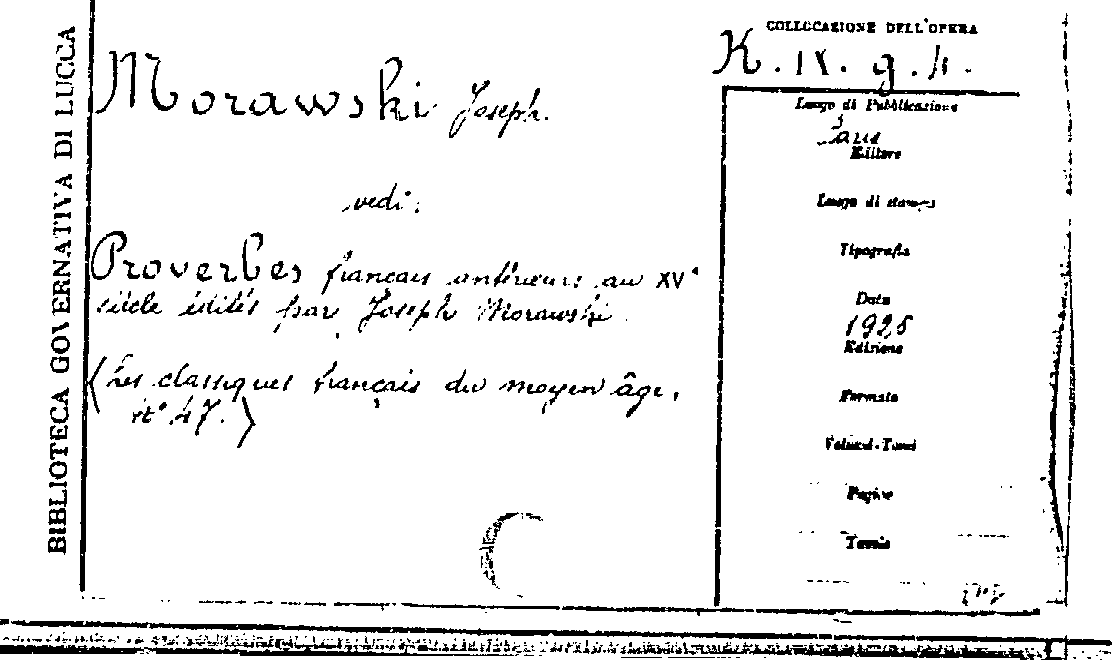 BIBLIOTECA GOVERNATIVA DI LUCCA
Morawski Joseph.
vedi:
Proverbes français antérieurs au XVe
siècle édités par Joseph Morawski
(Les classiques français du moyen âge,
n° 47.)
COLLOCAZIONE DELL'OPERA
K. IX. g. 4.
Luogo di Pubblicazione
Paris
Editore
Luogo di stampa
Tipografia
Data
1925
Edizione
Formato
Volumi-Tomi
Pagine
Tavole